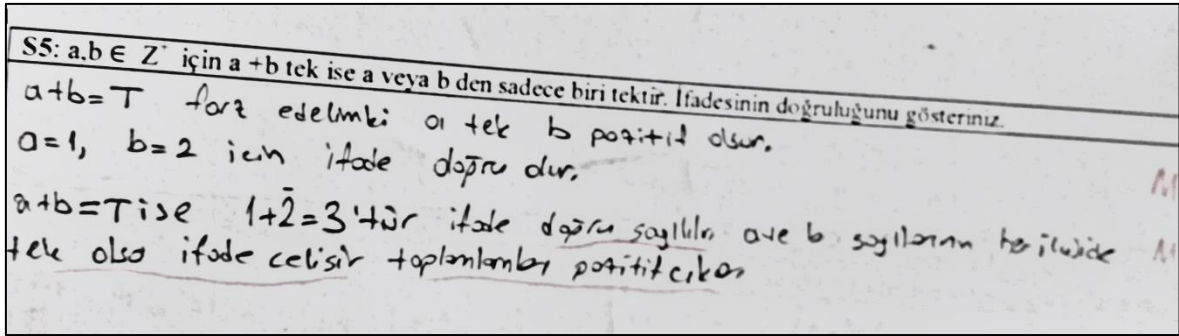 S5: a,b ∈ Z⁺ için a +b tek ise a veya b den sadece biri tektir. İfadesinin doğruluğunu gösteriniz.
a+b=T farz edelimki a tek b pozitif olsun.
a=1, b=2 için ifade doğru dur.
a+b=T ise 1+2=3'tür ifade doğru sağlılır a ve b sayılarının her ikiside
tek olsa ifade celisir toplamları pozitif çıkar